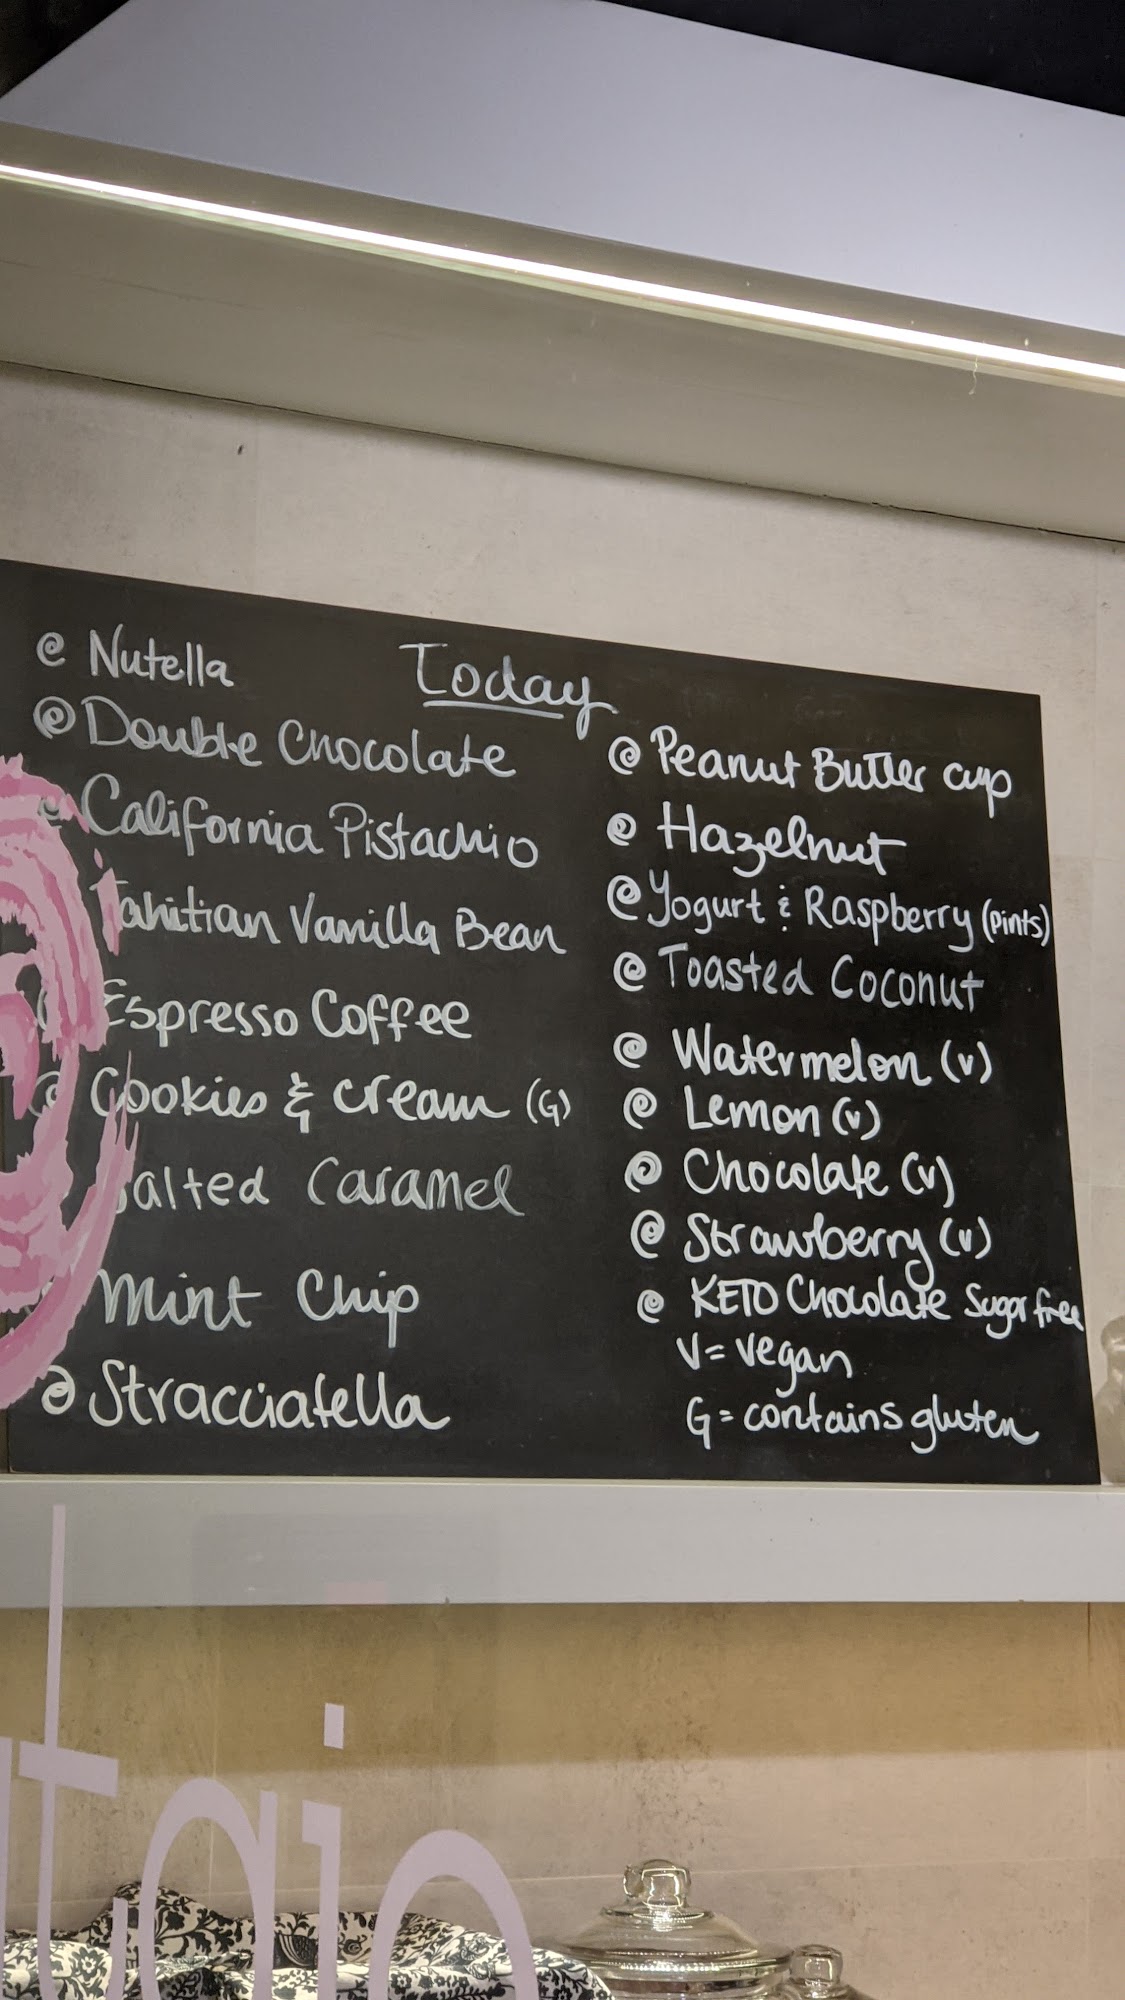 Today
Nutella
Double Chocolate
California Pistachio
Tahitian Vanilla Bean
Espresso Coffee
Cookies & cream (G)
Salted Caramel
Mint Chip
Stracciatella
Peanut Butter cup
Hazelnut
Yogurt & Raspberry (pints)
Toasted Coconut
Watermelon (v)
Lemon (v)
Chocolate (v)
Strawberry (v)
KETO Chocolate Sugar free
V = vegan
G = contains gluten